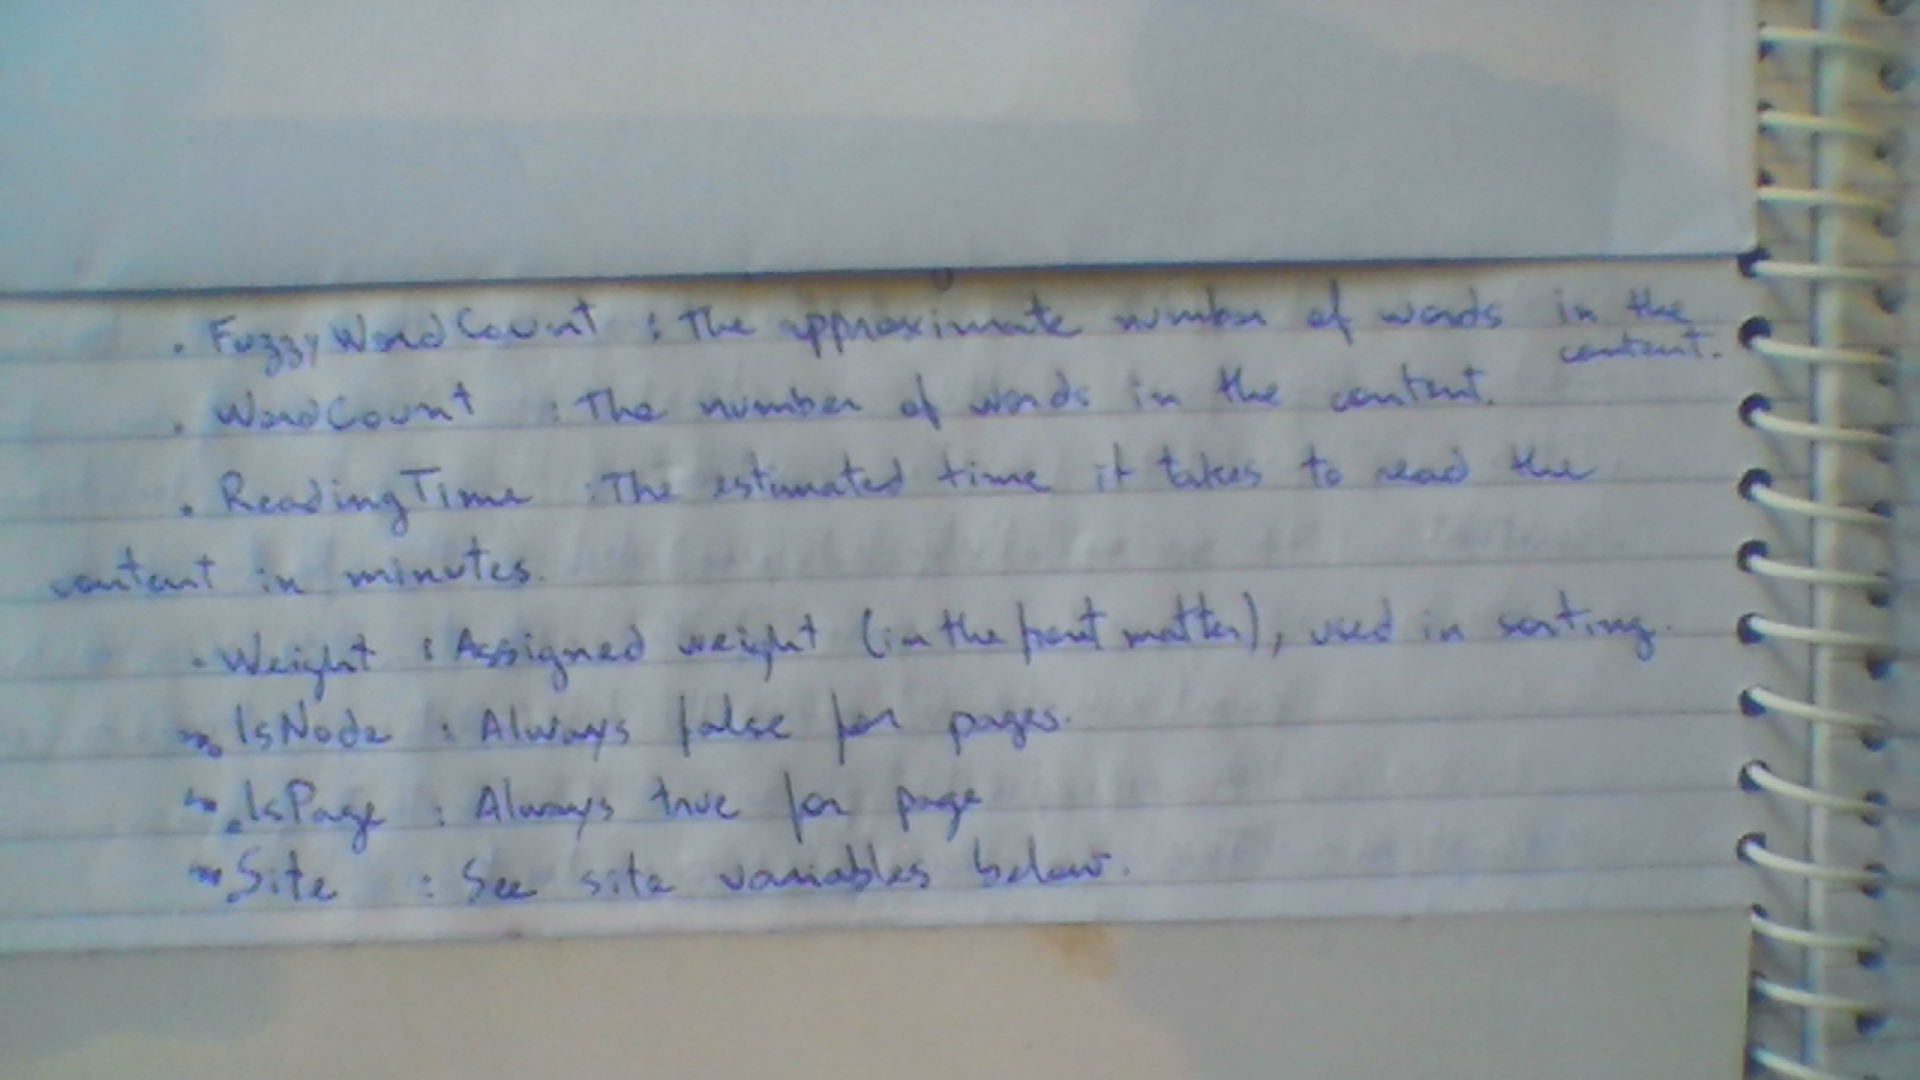 . FuzzyWordCount : The approximate number of words in the
content.
. WordCount : The number of words in the content.
. ReadingTime : The estimated time it takes to read the
content in minutes.
. Weight : Assigned weight (in the front matter), used in sorting.
. IsNode : Always false for pages.
. IsPage : Always true for page
. Site : See site variables below.